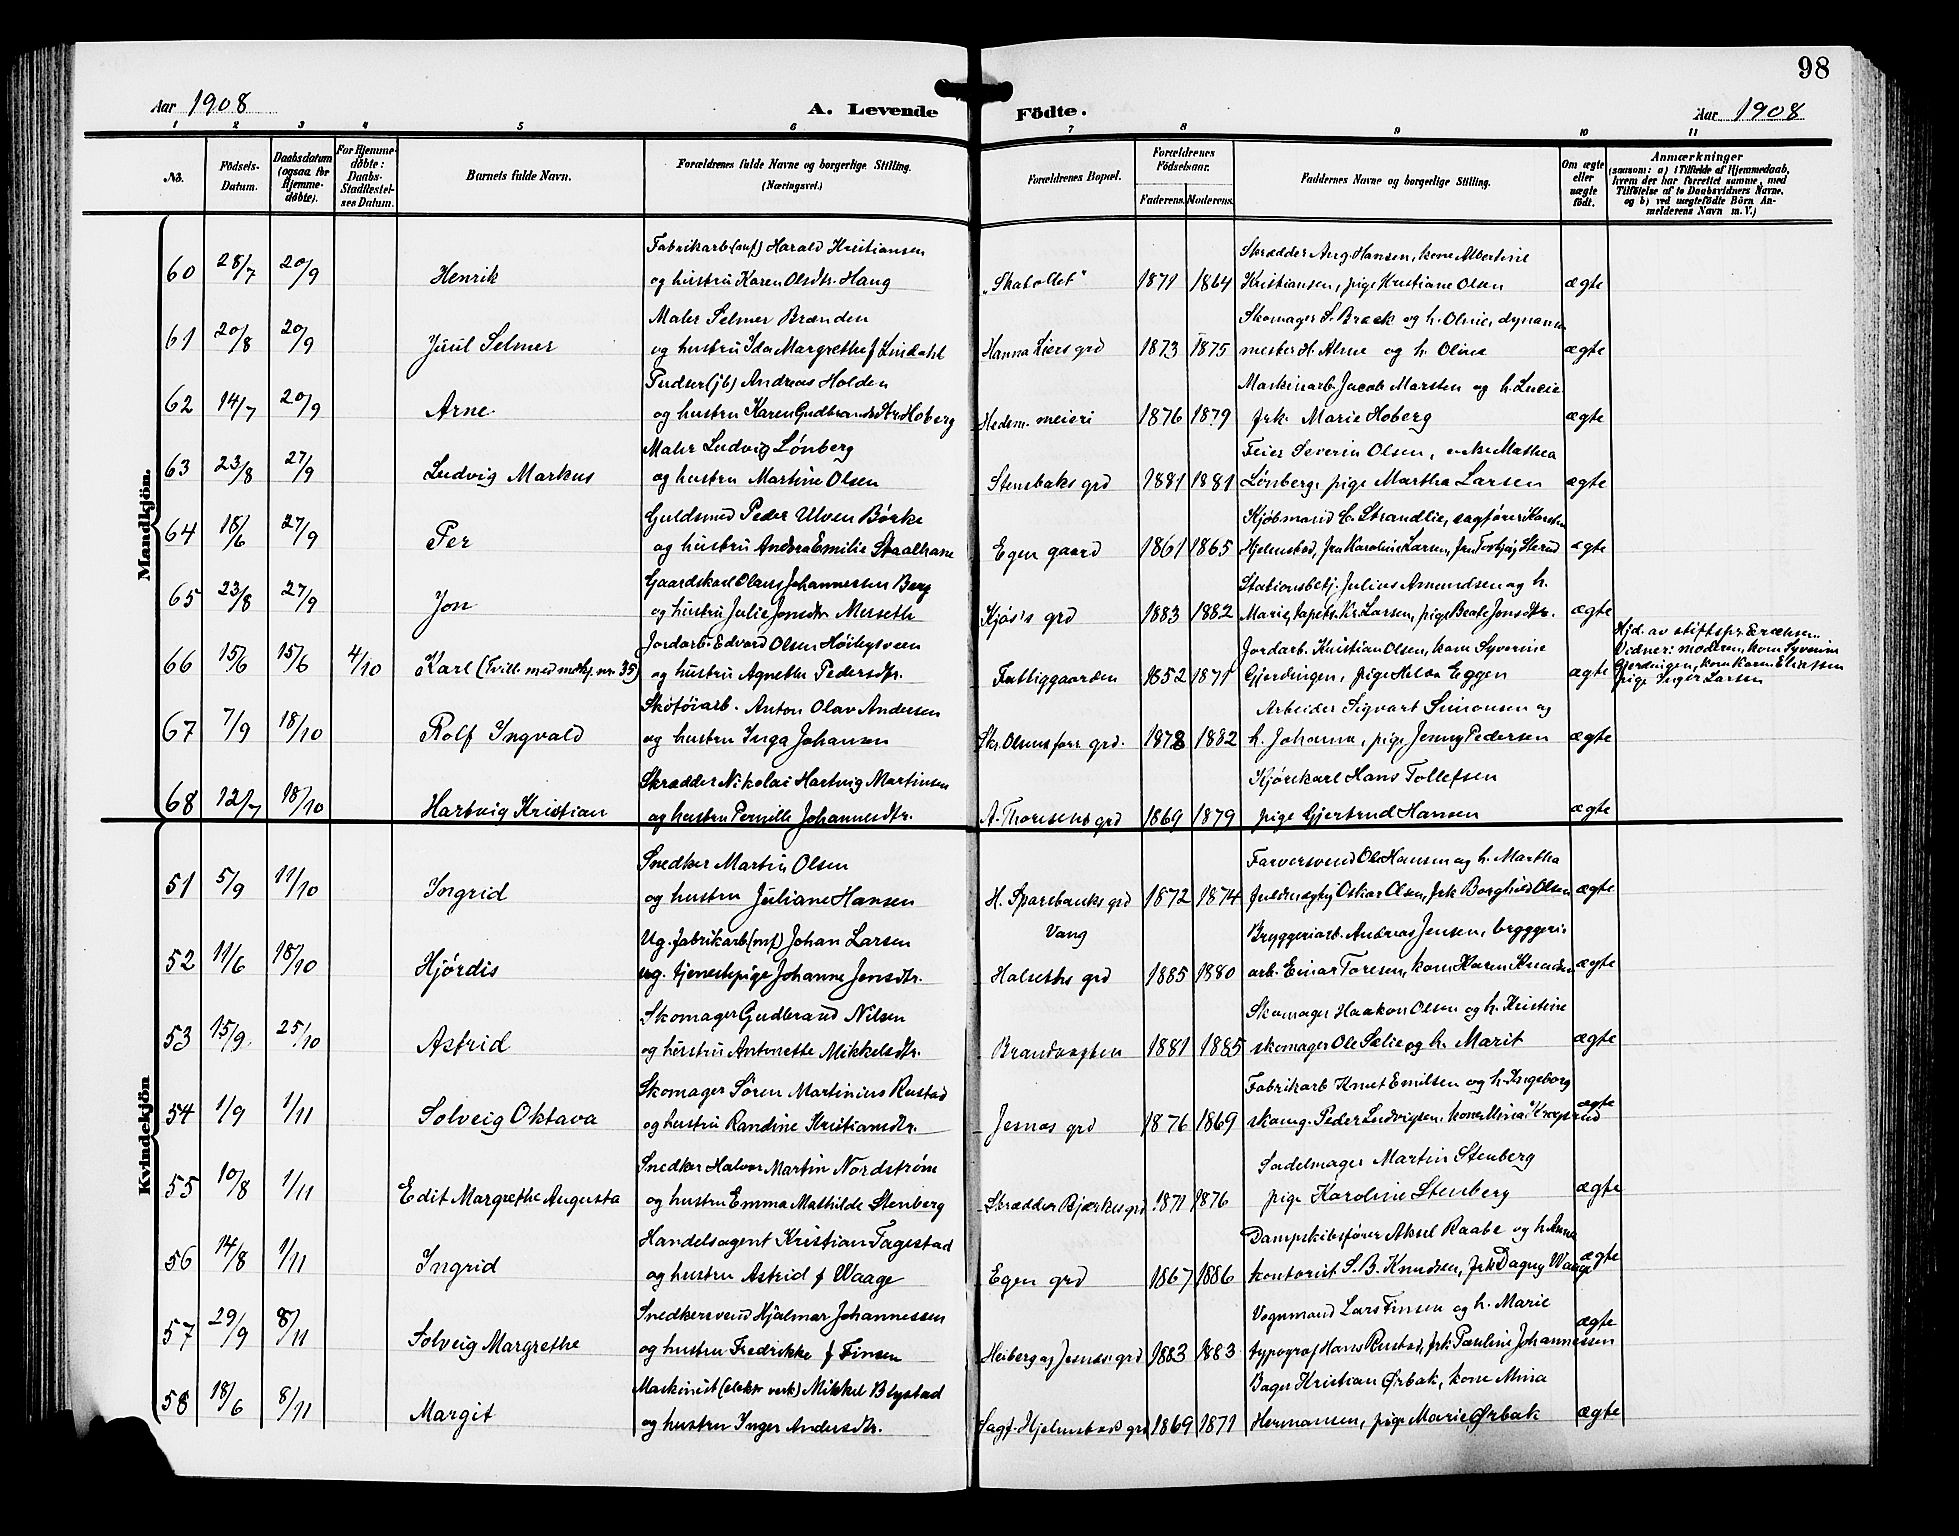 98
Aar 1908 A. Levende Födte. Aar 1908
1 2 3 4 5 6 7 8 9 10 11
No. Födsels-Datum. Daabsdatum (ogsaa for Hjemmedöbte). For Hjemmedöbte: Daabs-Stadfæstelses Datum. Barnets fulde Navn. Forældrenes fulde Navne og borgerlige Stilling. (Næringsvei.) Forældrenes Bopæl. Forældrenes Födselsaar. Faderens. Moderens. Faddernes Navne og borgerlige Stilling. Om ægte eller uægte födt. Anmærkninger (saasom: a) i Tilfælde af Hjemmedaab, hvem der har forrettet samme, med Tilföielse af to Daabsvidners Navne, og b) ved uægtefödte Börn Anmelderens Navn m. V.)
Mandkjön.
Fabrikarb (mf) Harald Kristiansen Skrædder Aug. Hansen, kone Albertine
60 28/7 20/9 Henrik og hustru Karen Olsdtr. Haug "Skaboltet" 1871 1864 Kristiansen, pige Kristiane Olsen ægte
Maler Selmer Brænden Skomager S. Bræk og h. Oline, dynamit
61 20/8 20/9 Juul Selmer og hustru Ida Margrethe f Lindahl Hanna Liers grd 1873 1875 mester H. Alme og h. Olive ægte
Pudser (jb) Andreas Holden Maskinarb. Jacob Marsten og h. Lucie
62 14/7 20/9 Arne og hustru Karen Gudbrandsdtr. Hoberg Hedem. meieri 1876 1879 frk. Marie Hoberg ægte
Maler Ludvig Lønberg Feier Severin Olsen, enke Mathea
63 23/8 27/9 Ludvig Markus og hustru Martine Olsen Stensbaks grd 1881 1881 Lønberg, pige Martha Larsen ægte
Guldsmed Peder Ulven Børke Kjöbmand C. Strandlie, sagfører Karsten
64 18/6 27/9 Per og hustru Andrea Emilie Staalhane Egen gaard 1861 1865 Hjelmstad, fru Karoline Larsen, fru Sterud ægte
Gaardskarl Olaus Johannessen Berg Stationsbetj. Julius Amundsen og h.
65 23/8 27/9 Jon og hustru Julie Jonsdtr. Merseth Kjøs's grd 1883 1882 Marie, tapets. Kr. Larsen, pige Beate Jonsdtr. ægte
Jordarb. Edvard Olsen Høibysveen Jordarb. Kristian Olsen, kone Syverine Hjd. av stiftspr. Erichsen.
66 15/6 15/6 4/10 Karl (Tvilling med mdkj. nr. 35) og hustru Agnethe Pedersdtr. Fattiggaarden 1852 1871 Gjerdingen, pige Helga Eggen ægte Vidner: moderen, kone Syverine
Gjerdingen, kone Karen Eliassen
pige Inger Larsen
Skotøiarb. Anton Olav Andersen Arbeider Sigvart Simonsen og
67 7/9 18/10 Rolf Ingvald og hustru Inga Johansen Skr. Olsens grd. 1878 1882 h. Johanna, pige Jenny Pedersen ægte
Skrædder Nikolai Hartvig Martinsen Kjørekarl Hans Tollefsen
68 12/7 18/10 Hartvig Kristian og hustru Pernille Johannesdtr. A. Thoresens grd 1869 1879 pige Gjertrud Hansen ægte
Kvindekjön
Snedker Martin Olsen Farversvend Ole Hansen og h. Martha
51 5/9 11/10 Ingrid og hustru Juliane Hansen H. Sparebanks grd 1872 1874 Oskar Olsen, frk Borghild Olsen ægte
Ug. fabrikarb (mf) Johan Larsen Vang Bryggeriarb. Andreas Jensen, bryggeri-
52 11/6 18/10 Hjördis ug. tjenestepige Johanne Jensdtr. Halseths grd 1885 1880 arb. Einar Toresen, kone Karen Knudsen uægte
Skomager Gudbrand Nilsen Skomager Haakon Olsen og h. Kristine
53 15/9 25/10 Astrid og hustru Antonette Mikkelsdtr. Brandvagten 1881 1885 skomager Ole Sælie og h. Marit ægte
Skomager Søren Martinius Rustad Fabrikarb Knut Emilsen og h. Ingeborg
54 1/9 1/11 Solveig Oktava og hustru Randine Kristiansdtr. Jesnæs grd 1876 1869 skomg. Peder Ludvigsen, kone Mina ægte
Snedker Halvor Martin Nordstrøm Sadelmager Martin Stenberg
55 10/8 1/11 Edit Margrethe Augusta og hustru Emma Mathilde Stenberg Skrædder Bjærkes grd 1871 1876 pige Karoline Stenberg ægte
Handelsagent Kristian Fagestad Dampskibsfører Aksel Raabe og h. Anna
56 14/8 1/11 Ingrid og hustru Astrid f Waage Egen grd 1867 1886 kontorist S. B. Knudsen, frk Dagny Waage ægte
Snedkersvend Hjalmar Johannessen Vognmand Lars Finsen og h. Marie
57 29/9 8/11 Solveig Margrethe og hustru Fredrikke f Finsen Heiberg og Jesnæs grd 1883 1883 typograf Hans Rustad, frk. Pauline Johannessen ægte
Maskinist (elektr verk) Mikkel Blystad Bager Kristian Ørbak, kone Mina
58 18/6 8/11 Margit og hustru Inger Andersdtr. Sagf. Hjelmstads grd 1869 1871 Hermansen, pige Marie Ørbak ægte